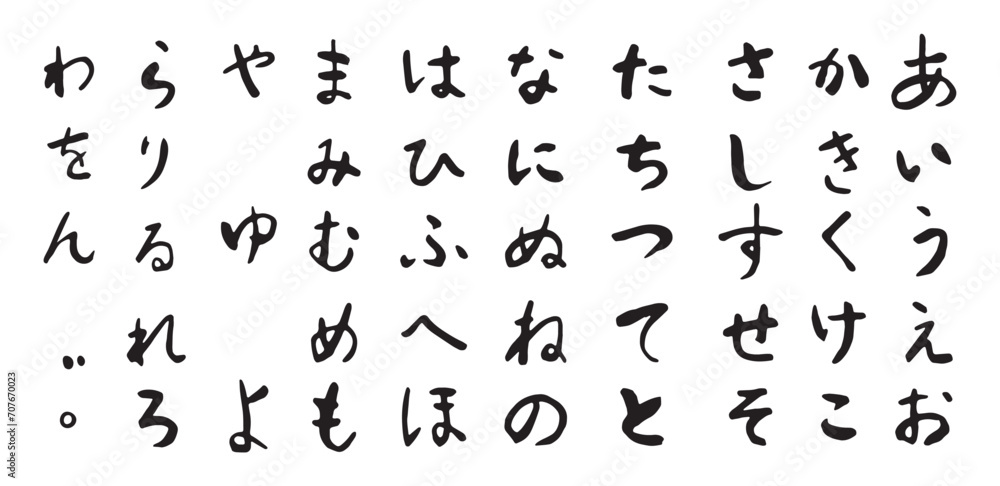 あいうえお
かきくけこ
さしすせそ
たちつてと
なにぬねの
はひふへほ
まみむめも
やゆよ
らりるれろ
わをん゛゜
Adobe Stock | #707670023